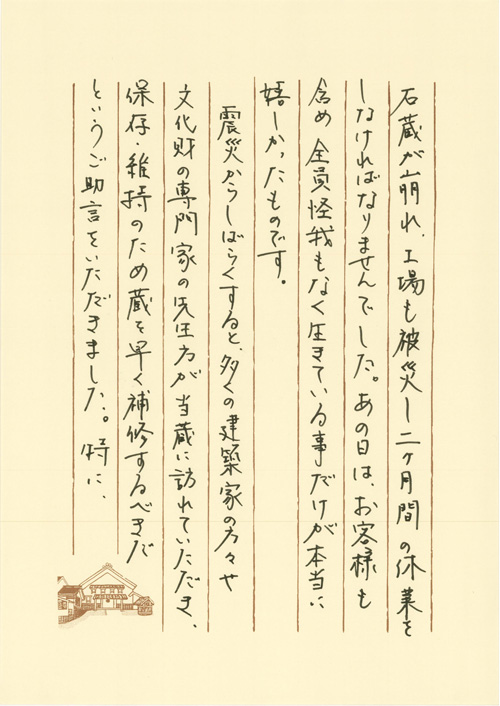 石蔵が崩れ、工場も被災し二ヶ月間の休業を
しなければなりませんでした。あの日は、お客様も
含め全員怪我もなく生きている事だけが本当に
嬉しかったものです。
震災からしばらくすると、多くの建築家の方々や
文化財の専門家の先生方が当蔵に訪れていただき、
保存・維持のため蔵を早く補修するべきだ
というご助言をいただきました。特に、